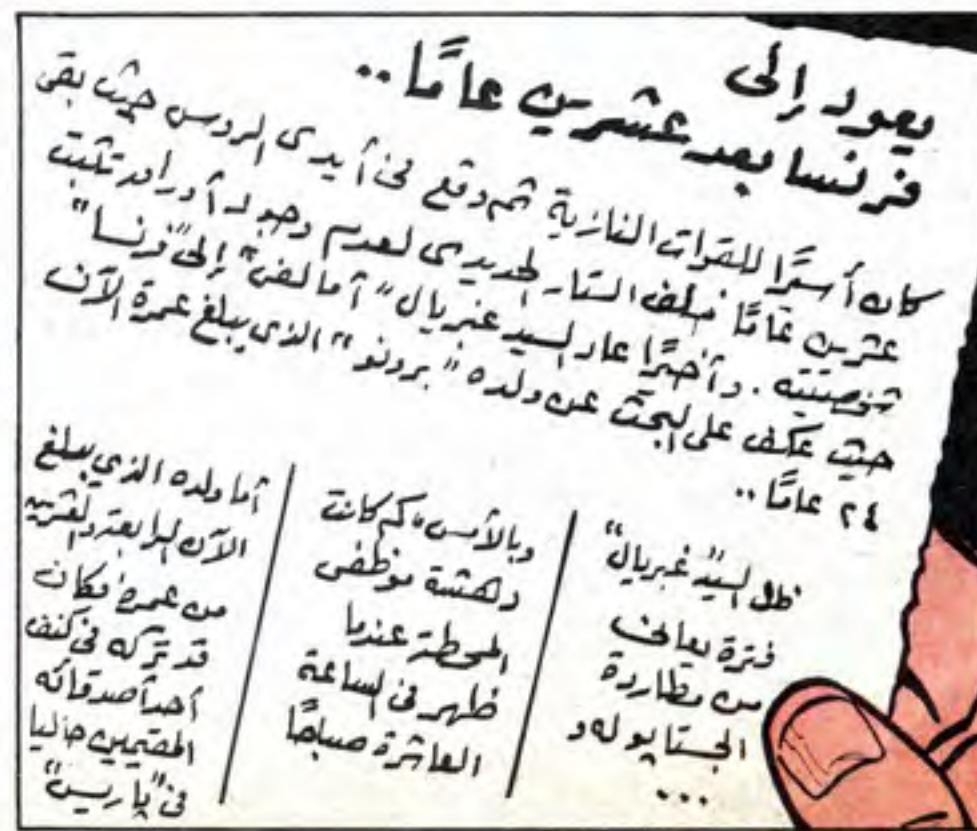 يعود إلى
فرنسا بعد عشرين عامًا..
كان أسيرًا للقوات النازية ثم وقع فى أيدى الروس حيث بقى
عشرين عامًا خلف الستار الحديدى لعدم وجود أوراق تثبت
شخصيته. وأخيرًا عاد السيد غبريال "أمالفى" إلى "فرنسا"
حيث عكف على البحث عن ولده "برونو" الذى يبلغ عمرة الآن
٢٤ عامًا..
ظل السيد "غبريال"
فترة يعانى
من مطاردة
الجستابو له و
...
وبالأمس، كم كانت
دهشة موظفى
المحطة عندما
ظهر فى الساعة
العاشرة صباحًا
أما ولده الذي يبلغ
الآن الرابعة والعشرين
من عمره فكان
قد تركه فى كنف
أحد أصدقائه
المقيمين حاليا
فى "پاريس"